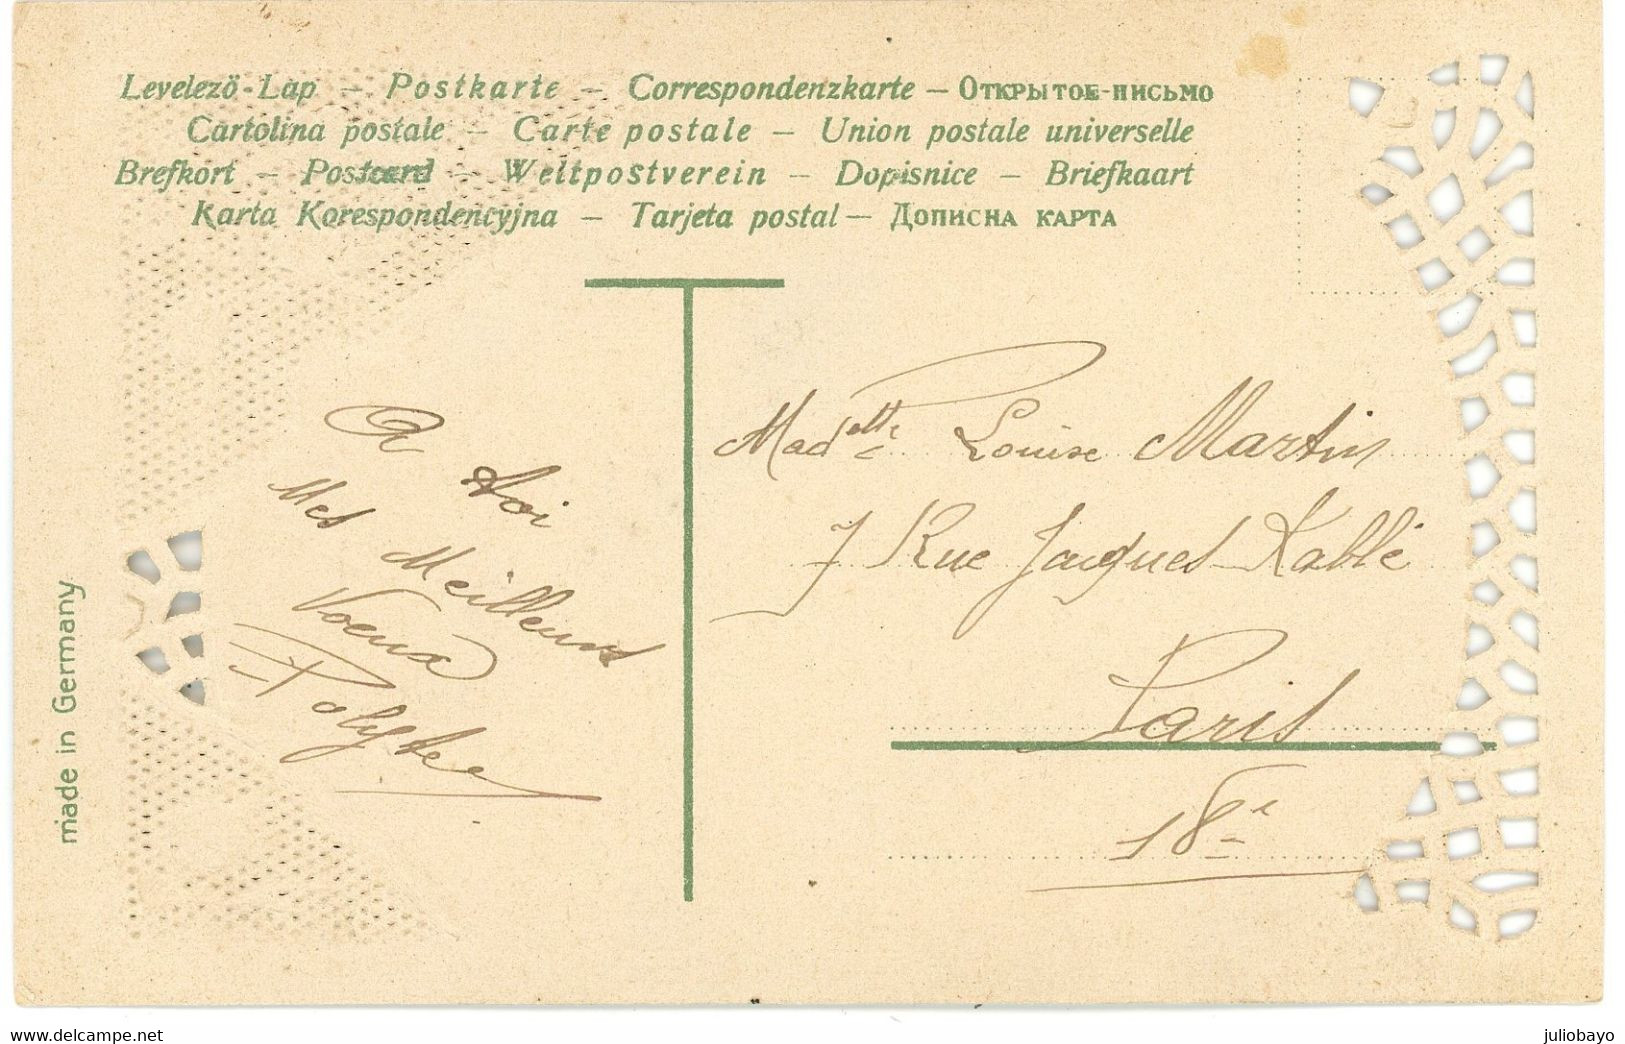 Levelező-Lap – Postkarte – Correspondenzkarte – Открытое-письмо
Cartolina postale – Carte postale – Union postale universelle
Brefkort – Postcard – Weltpostverein – Dopisnice – Briefkaart
Karta Korespondencyjna – Tarjeta postal – Дописна карта
A toi
Mes Meilleurs
Voeux
made in Germany
Madelle Louise Martin
7 Rue Jacques Kablé
Paris
18e
www.delcampe.net
juliobayo